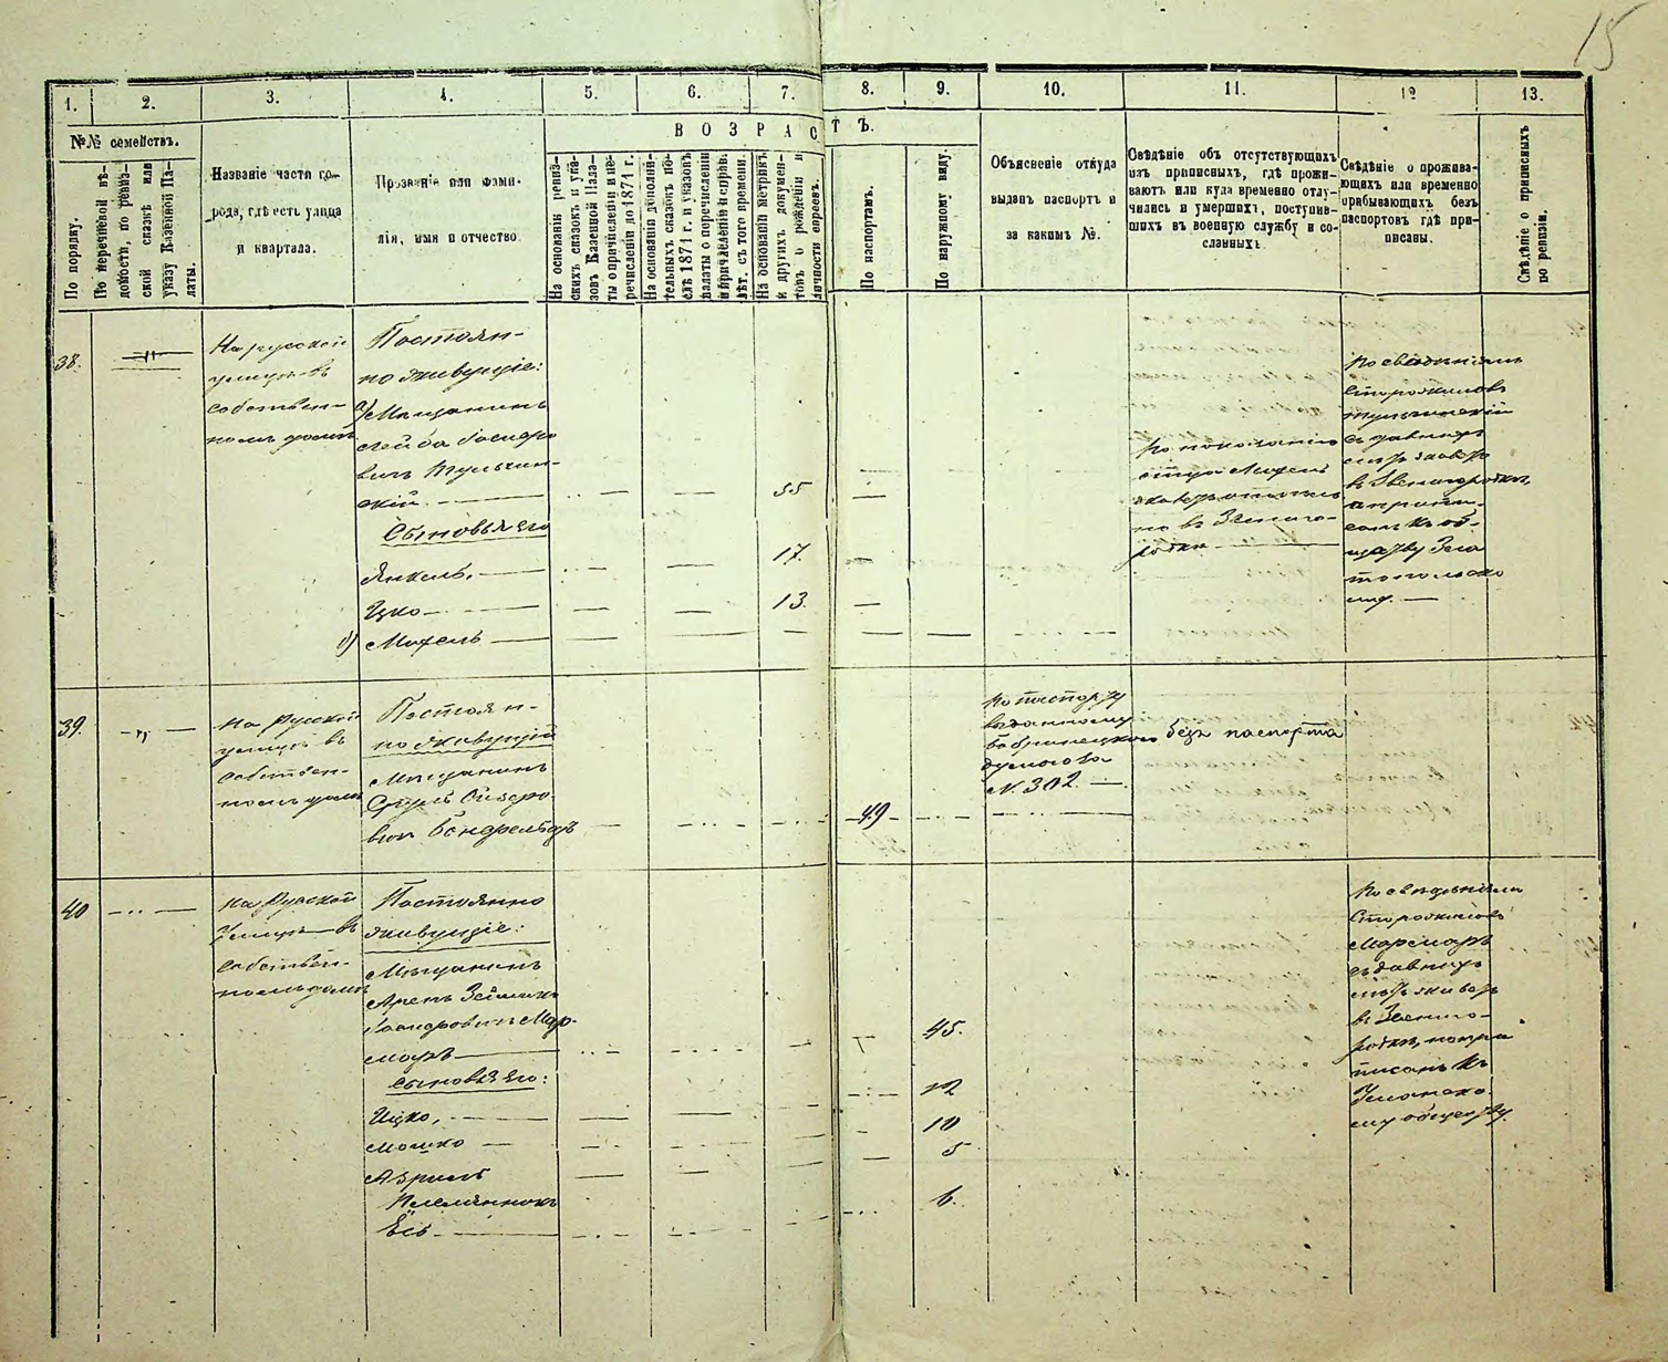 15
1. 2. 3. 4. 5. 6. 7. 8. 9. 10. 11. 12 13.
№№ семействъ.
ВОЗРАСТЪ.
По порядку.
По перечневой вѣ-
домости, по ревиз-
ской сказкѣ или
указу Казенной Па-
латы.
Названіе части го-
рода, гдѣ есть улица
и квартала.
Прозваніе или фами-
лія, имя и отчество
На основаніи ревиз-
скихъ сказокъ и ука-
зовъ Казенной Пала-
ты о причисленіи и пе-
речисленіи до 1871 г.
На основаніи дополни-
тельныхъ сказокъ по-
слѣ 1871 г. и указовъ
палаты о перечисленіи
и причисленіи и справ.
лѣт. съ того времени.
На основаніи метрикъ
и другихъ докумен-
товъ о рожденіи и
личности евреевъ.
По паспортамъ.
По наружному виду.
Объясненіе откуда
выданъ паспортъ и
за какимъ №.
Свѣдѣніе объ отсутствующихъ
изъ приписныхъ, гдѣ прожи-
ваютъ или куда временно отлу-
чились и умершихъ, поступив-
шихъ въ военную службу и со-
сланныхъ.
Свѣдѣніе о прожива-
ющихъ или временно
прибывающихъ безъ
паспортовъ гдѣ при-
писаны.
Свѣдѣніе о приписныхъ
по ревизіи.
38.
На русской
улицѣ въ
собствен-
номъ домѣ
Постоян-
но живущіе:
а) Мѣщанинъ
Лейба
вичъ Тульчин-
скій. 55
Сыновья его
Янкель. 17.
Ицко 13.
б) Мотель
отца Мотель
но въ Звениго-
родкѣ
По свѣдѣніямъ
Старожиловъ
Тульчинскій
съ давнихъ
лѣтъ живетъ
въ Звенигородкѣ,
а припи-
санъ къ об-
ществу Зла
топольско
му.
39.
На Русской
улицѣ въ
собствен-
номъ домѣ
Постоян-
но живущій
Мѣщанинъ
Сруль
вичъ 49
По паспорту
выданному
Бобринецкою
думою за
№ 302.
безъ паспорта
40
На Русской
Улицѣ въ
собствен-
номъ домѣ
Постоянно
живущіе:
Мѣщанинъ
Мар-
моръ 45.
Сыновья его:
Ицко, 12
Мошко 10
Азриль 5
Племянникъ
Ёсь 6.
По свѣдѣніямъ
Старожиловъ
Марморъ
съ давнихъ
лѣтъ живетъ
въ Звениго-
родкѣ, но при
писанъ къ
Уманско
му обществу.